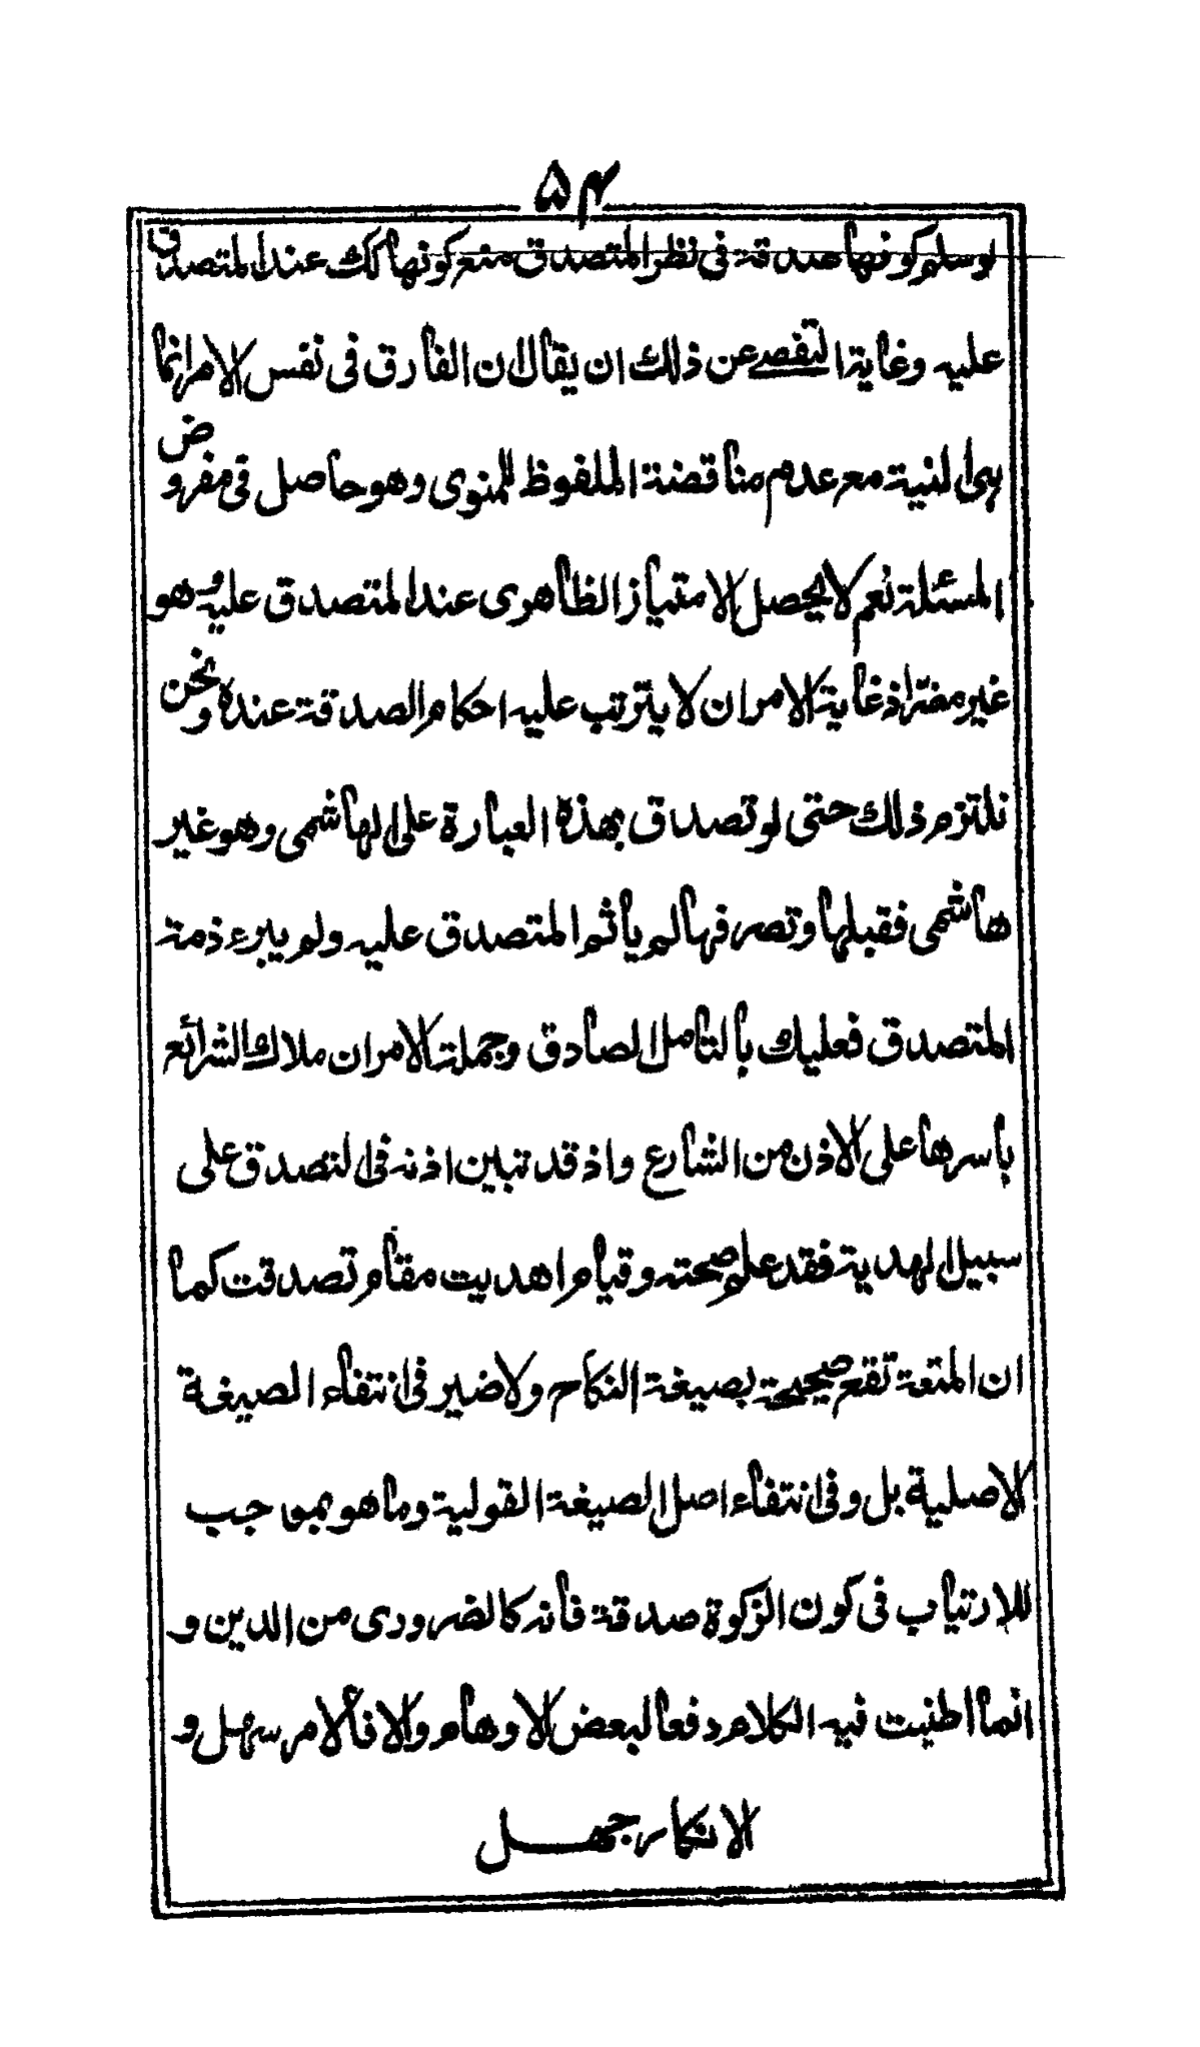 ۵۴
لو سلم كونها صدقة فى نظر المتصدق منع كونها كك عند المتصدق
عليه وغاية التفصے عن ذلك ان يقال ان الفارق فى نفس الامر انما
هى النية مع عدم مناقضة الملفوظ للمنوى وهو حاصل فى مفروض
المسئلة نعم لا يحصل الامتياز الظاهرى عند المتصدق عليه وهو
غير مضر اذ غاية الامر ان لا يترتب عليه احكام الصدقة عنده ونحن
نلتزم ذلك حتى لو تصدق بهذه العبارة على الهاشمى وهو غير
هاشمى فقبلها وتصرفها لم ياثم المتصدق عليه ولم يبرء ذمة
المتصدق فعليك بالتامل الصادق وجملة الامر ان ملاك الشرائع
باسرها على الاذن من الشارع واذ قد تبين اذنه فى التصدق على
سبيل الهدية فقد علم صحته وقيام اهديت مقام تصدقت كما
ان المتعة تقع صحيحة بصيغة النكاح ولا ضير فى انتفاء الصيغة
الاصلية بل وفى انتفاء اصل الصيغة القولية وما هو بموجب
للارتياب فى كون الزكوة صدقة فانه كالضرورى من الدين و
انما اطنبت فيه الكلام دفعا لبعض الاوهام والا فالامر سهل و
الانكار جهل